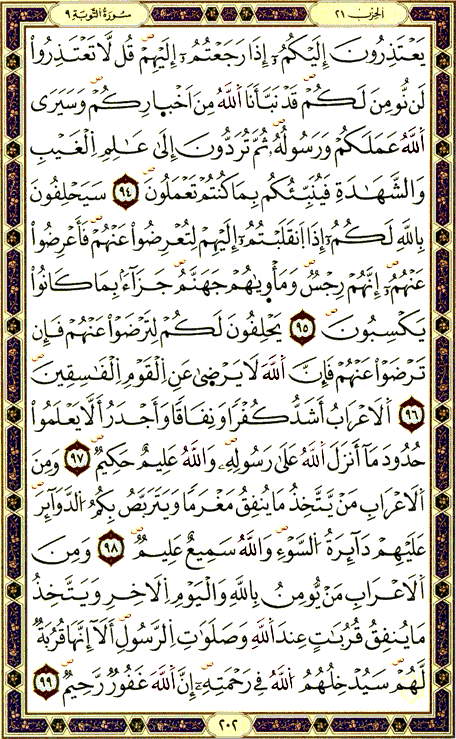 الحزب ٢١
سورة التوبة ٩
يَعْتَذِرُونَ إِلَيْكُمُۥٓ إِذَا رَجَعْتُمُۥٓ إِلَيْهِمْ قُل لَّا تَعْتَذِرُوا۟
لَن نُّومِنَ لَكُمْ قَدْ نَبَّأَنَا اَللَّهُ مِنَ اَخْبارِكُمْ وَسَيَرَى
اَللَّهُ عَمَلَكُمْ وَرَسُولُهُۥ ثُمَّ تُرَدُّونَ إِلَىٰ عَالِمِ اِلْغَيْبِ
وَالشَّهَادَةِ فَيُنَبِّئُكُم بِمَا كُنتُمْ تَعْمَلُونَ ٩٤ سَيَحْلِفُونَ
بِاللَّهِ لَكُمُۥٓ إِذَا اَنقَلَبْتُمُۥٓ إِلَيْهِمْ لِتُعْرِضُوا۟ عَنْهُمْ فَأَعْرِضُوا۟
عَنْهُمُۥٓ إِنَّهُمْ رِجْسٌ وَمَأْوِيٰهُمْ جَهَنَّمُ جَزَآءً بِمَا كَانُوا۟
يَكْسِبُونَ ٩٥ يَحْلِفُونَ لَكُمْ لِتَرْضَوْا۟ عَنْهُمْ فَإِن
تَرْضَوْا۟ عَنْهُمْ فَإِنَّ اَللَّهَ لَا يَرْضَىٰ عَنِ اِلْقَوْمِ اِلْفَاسِقِينَ
٩٦ اَلَاعْرَابُ أَشَدُّ كُفْرًا وَنِفَاقًا وَأَجْدَرُ أَلَّا يَعْلَمُوا۟
حُدُودَ مَآ أَنزَلَ اَللَّهُ عَلَىٰ رَسُولِهِۦ وَاللَّهُ عَلِيمٌ حَكِيمٌ ٩٧ وَمِنَ
اَلَاعْرَابِ مَنْ يَتَّخِذُ مَا يُنفِقُ مَغْرَمًا وَيَتَرَبَّصُ بِكُمُ اُلدَّوَآئِرَ
عَلَيْهِمْ دَآئِرَةُ اُلسَّوْءِ وَاللَّهُ سَمِيعٌ عَلِيمٌ ٩٨ وَمِنَ
اَلَاعْرَابِ مَنْ يُّومِنُ بِاللَّهِ وَالْيَوْمِ اِلَاخِرِ وَيَتَّخِذُ
مَا يُنفِقُ قُرُبَاتٍ عِندَ اَللَّهِ وَصَلَوَاتِ اِلرَّسُولِ أَلَآ إِنَّهَا قُرْبَةٌ
لَّهُمْ سَيُدْخِلُهُمُ اُللَّهُ فِي رَحْمَتِهِۦٓ إِنَّ اَللَّهَ غَفُورٌ رَّحِيمٌ ٩٩
٢٠٢